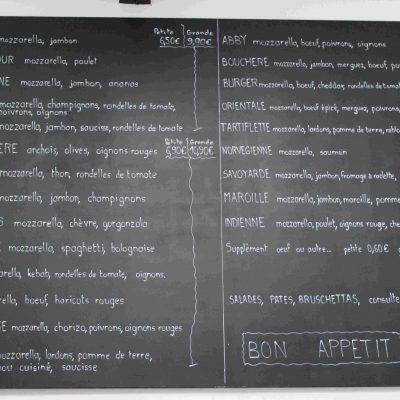 Petite Grande
mozzarella, jambon 6,50€ 9,90€
OUR mozzarella, poulet
NE mozzarella, jambon, ananas
mozzarella, champignons, rondelles de tomate,
poivrons, oignons
mozzarella, jambon, saucisse, rondelles de tomate
Petite Grande
ÈRE anchois, olives, oignons rouges 6,90€ 10,90€
mozzarella, thon, rondelles de tomate
mozzarella, jambon, champignons
mozzarella, chèvre, gorgonzola
mozzarella, spaghetti, bolognaise
rella, kebab, rondelles de tomate, oignons.
ella, boeuf, haricots rouges
SE mozzarella, chorizo, poivrons, oignons rouges
mozzarella, lardons, pomme de terre,
ou cuisiné, saucisse
ABBY mozzarella, boeuf, poivrons, oignons
BOUCHERE mozzarella, jambon, merguez, boeuf, po
BURGER mozzarella, boeuf, cheddar, rondelles de tomat
ORIENTALE mozzarella, boeuf épicé, merguez, poivrons,
TARTIFLETTE mozzarella, lardons, pomme de terre, reblo
NORVEGIENNE mozzarella, saumon
SAVOYARDE mozzarella, jambon, fromage à raclette,
MAROILLE mozzarella, jambon, maroille, pomme
INDIENNE mozzarella, poulet, oignons rouge, che
Supplément oeuf ou autre... petite 0,60€
SALADES, PATES, BRUSCHETTAS, consulte
BON APPETIT